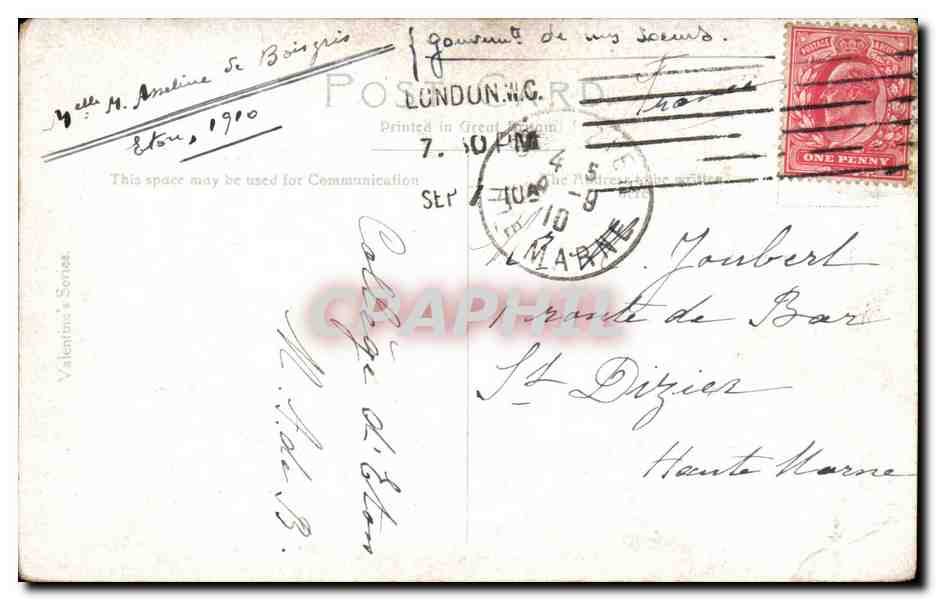 Melle M. Asseline de Boisgris
Eton, 1910
{ gouvernte de mes soeurs.
France
POST CARD
Printed in Great Britain
This space may be used for Communication
The Address to be written here
LONDON.W.C.
7. 30 PM
SEP 7 10
4 5
8 - 9
10
MARNE
POSTAGE
ONE PENNY
Valentine's Series.
Collège d'Eton
M. A. de B.
Joubert
route de Bar
St Dizier
Haute Marne
CPAPHIL